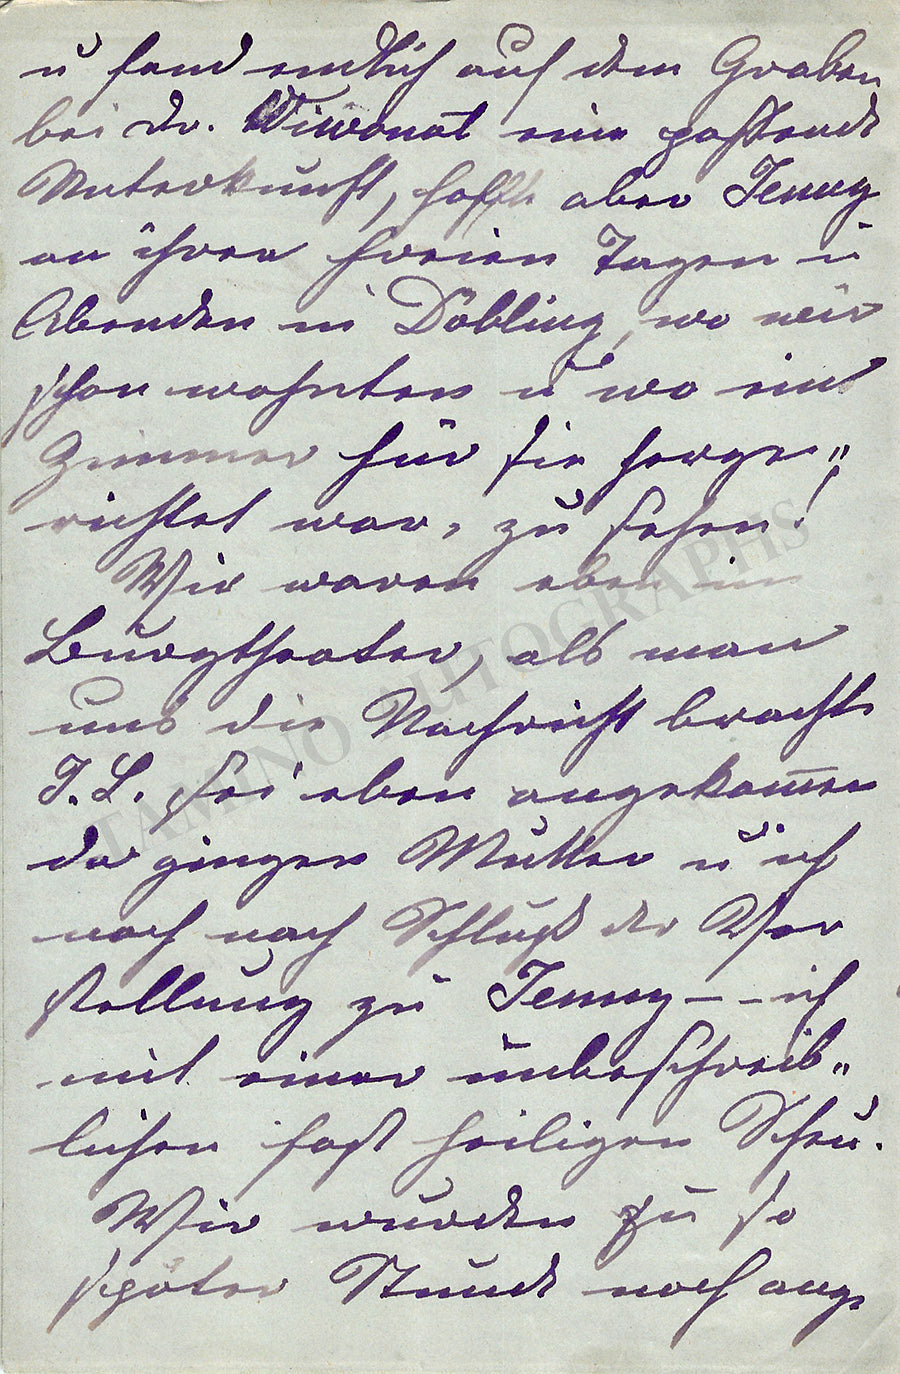 u fand endlich auf dem Graben
bei Dr. Wiwonat eine passende
Unterkunft, hoffte aber Jenny
an ihren freien Tagen u
Abenden in Döbling, wo wir
schon wohnten u wo ein
Zimmer für sie herge„
richtet war, zu sehen!
Wir waren eben im
Burgtheater, als man
uns die Nachricht brachte
J. L. sei eben angekommen
da gingen Mutter u ich
noch nach Schluß der Vor
stellung zu Jenny – – ich
mit einer unbeschreib„
lichen fast heiligen Scheu.
Wir wurden zu so
später Stunde noch ange
TAMINO AUTOGRAPHS